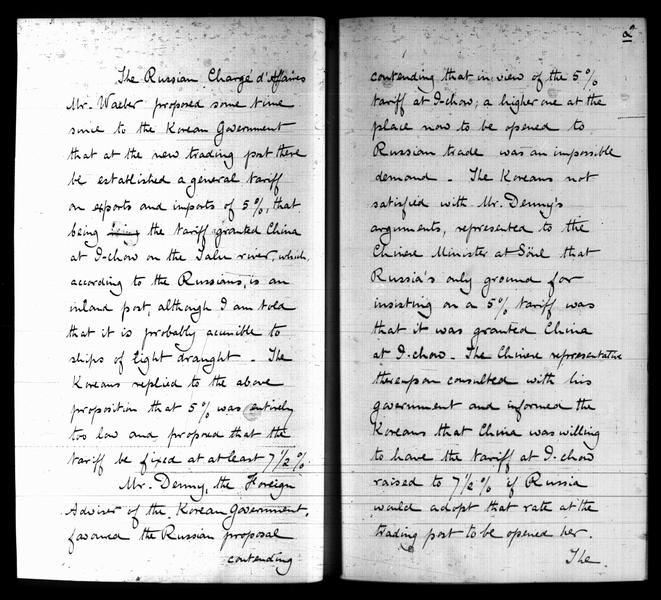 The Russian Chargé d'Affaires
Mr. Waeber proposed some time
since to the Korean Government
that at the new trading post there
be established a general tariff
on exports and imports of 5%, that
being being the tariff granted China
at I-chow on the Yalu river, which,
according to the Russians, is an
inland post, although I am told
that it is probably accessible to
ships of light draught. The
Koreans replied to the above
proposition that 5% was entirely
too low and proposed that the
tariff be fixed at at least 7 1/2 %.
Mr. Denny, the Foreign
Adviser of the Korean Government,
favoured the Russian proposal
contending
contending that in view of the 5%
tariff at I-chow, a higher one at the
place now to be opened to
Russian trade was an impossible
demand. The Koreans not
satisfied with Mr. Denny's
arguments, represented to the
Chinese Minister at Söul that
Russia's only ground for
insisting on a 5% tariff was
that it was granted China
at I-chow. The Chinese representative
thereupon consulted with his
government and informed the
Koreans that China was willing
to have the tariff at I-chow
raised to 7 1/2 % if Russia
would adopt that rate at the
trading post to be opened her.
The